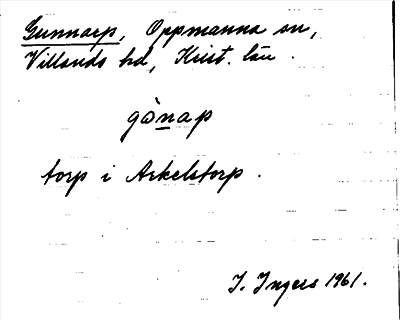 Gunnarp, Oppmanna sn,
Villands hd, Krist. län.
gònap
torp i Arkelstorp.
I. Ingers 1961.